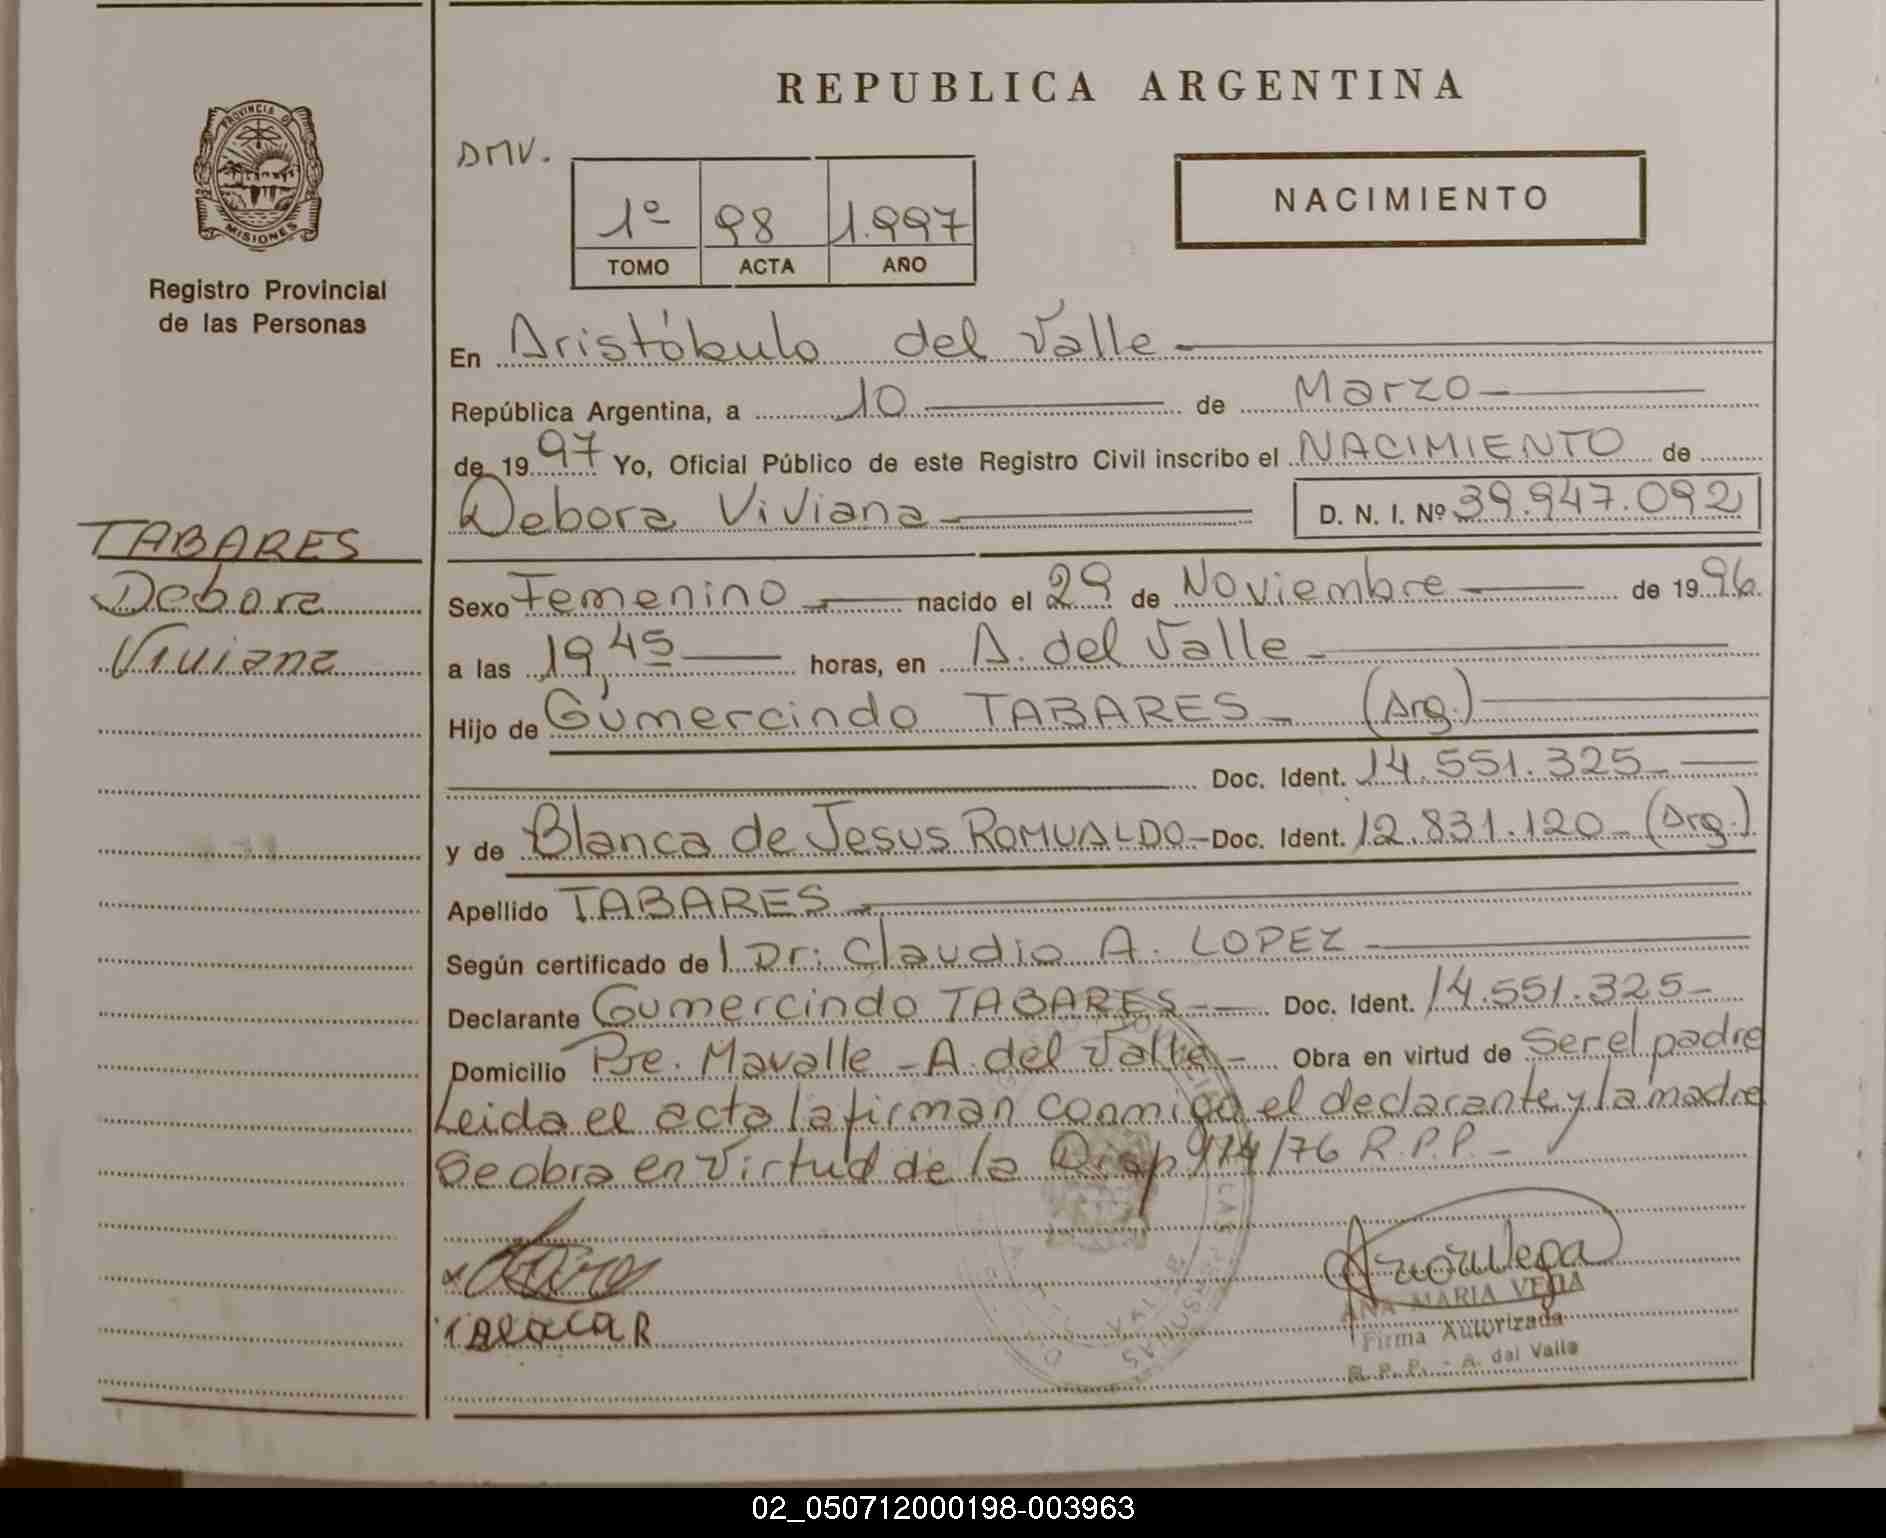 REPUBLICA ARGENTINA
PROVINCIA DE
MISIONES
Registro Provincial
de las Personas
DMV.
1º 98 1.997
TOMO ACTA AÑO
NACIMIENTO
En Aristóbulo del Valle
República Argentina, a 10 de Marzo
de 1997 Yo, Oficial Público de este Registro Civil inscribo el NACIMIENTO de
Debora Viviana D. N. I. Nº 39.947.092
TABARES
Debora
Viviana
Sexo Femenino nacido el 29 de Noviembre de 1996
a las 19,45 horas, en A. del Valle
Hijo de Gumercindo TABARES (Arg.)
Doc. Ident. 14.551.325
y de Blanca de Jesus ROMUALDO Doc. Ident. 12.831.120 (Arg.)
Apellido TABARES
Según certificado de Dr: Claudio A. LOPEZ
Declarante Gumercindo TABARES Doc. Ident. 14.551.325
Domicilio Pje. Mavalle - A. del Valle Obra en virtud de Ser el padre
Leida el acta la firman conmigo el declarante y la madre
Se obra en virtud de la Disp 914/76 R.P.P.
ANA MARIA VEGA
Firma Autorizada
R. P. P. - A. del Valle
02_050712000198-003963